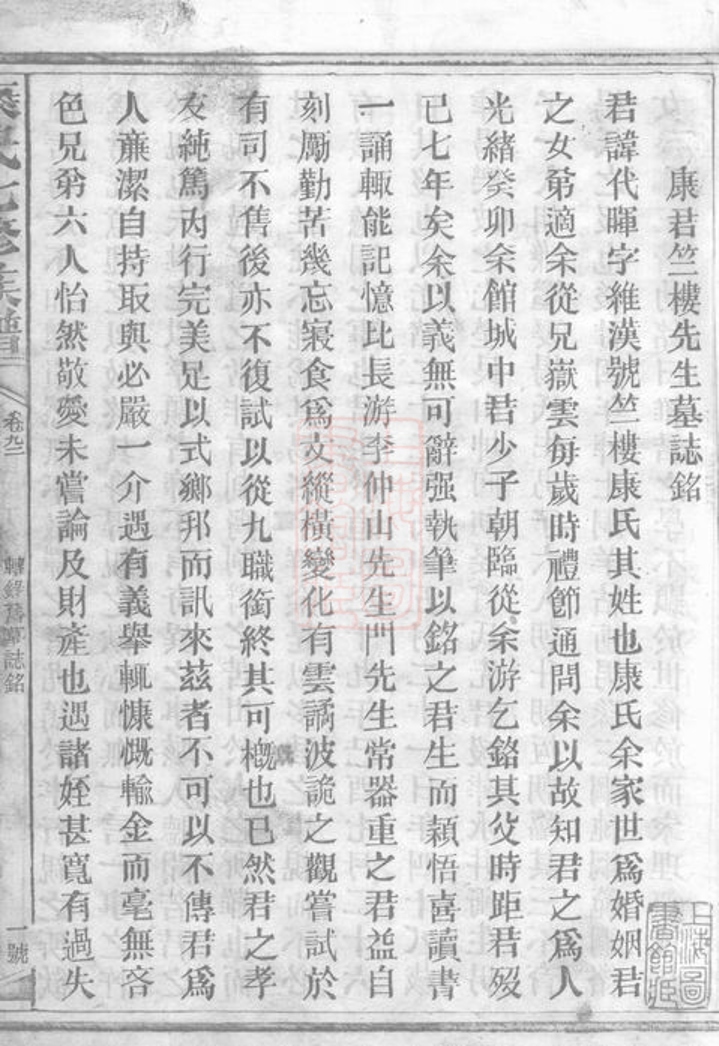 康君竺樓先生墓誌銘
君諱代暉字維漢號竺樓康氏其姓也康氏余家世爲婚姻君
之女弟適余從兄嶽雲每歲時禮節通問余以故知君之爲人
光緒癸卯余館城中君少子朝臨從余游乞銘其父時距君歿
已七年矣余以義無可辭强執筆以銘之君生而穎悟喜讀書
一誦輙能記憶比長游李仲山先生門先生常器重之君益自
刻勵勤苦幾忘寢食爲文縱橫變化有雲譎波詭之觀嘗試於
有司不售後亦不復試以從九職銜終其可槪也已然君之孝
友純篤內行完美足以式鄉邦而訊來茲者不可以不傳君爲
人亷潔自持取與必嚴一介遇有義舉輒慷慨輸金而毫無吝
色兄弟六人怡然敬愛未嘗論及財產也遇諸姪甚寬有過失
氏七修族譜
卷之
舊墓誌銘
一號
上海圖書館藏